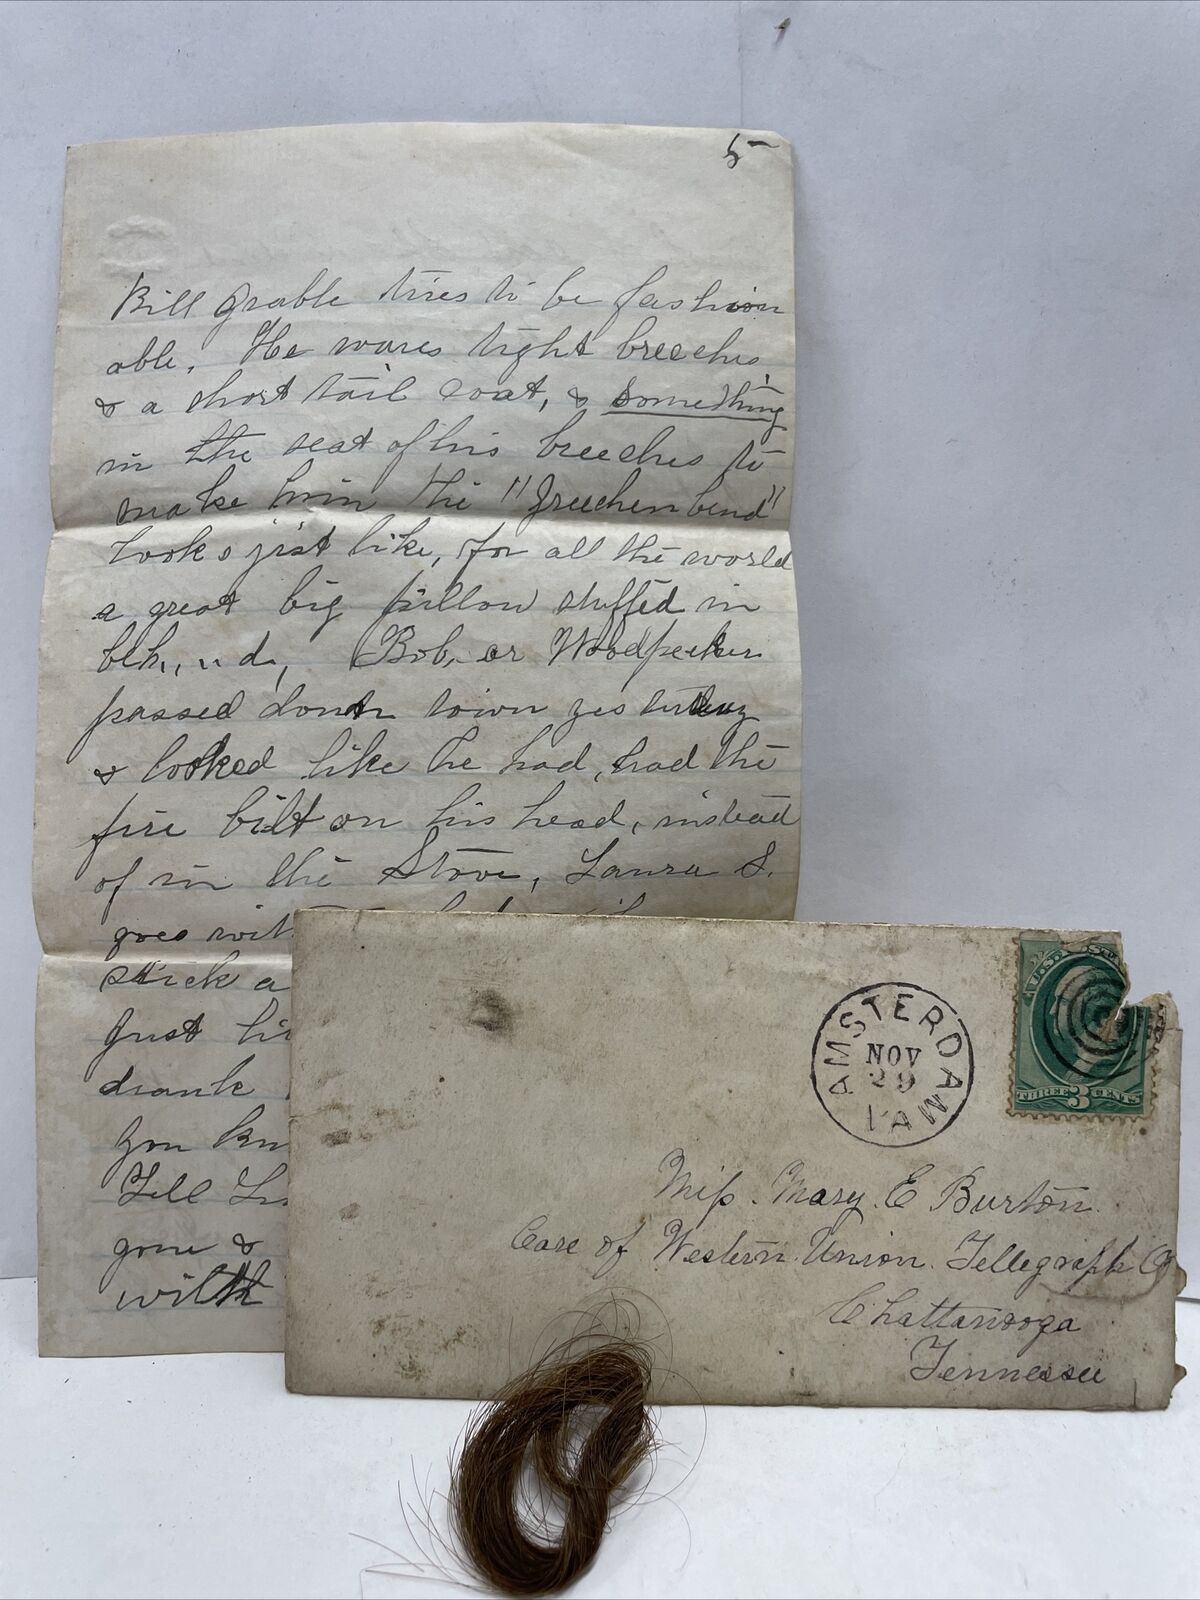 5
Bill Grable tries to be fashion
able. He wares tight breeches
& a short tail coat, & something
in the seat of his breeches to
make him the "Greechen bend"
looks jist like, for all the world
a great big pillow stuffed in
beh,, ,, d, Bob, or Woodpecker
passed down town yesterday
& looked like he had, had the
fire bilt on his head, instead
of in the Stove, Laura S.
goes wit
stick a
Just li
drank
You kn
Tell
gone &
with
AMSTERDAM
NOV
29
VA
U.S.
THREE 3 CENTS
Miss. Mary. E Burton.
Care of Western Union. Tellegraph Co
Chattanooga
Tennessee